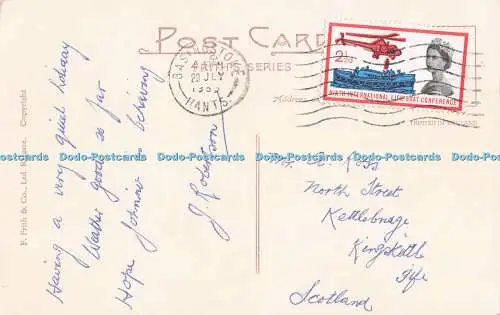 POST CARD
FRITH'S SERIES
BASINGSTOKE
20 JLY
HANTS.
2½D
NINTH INTERNATIONAL LIFEBOAT CONFERENCE
Address
F. Frith & Co., Ltd. Reigate. Copyright
Having a very quiet holiday
Weather good so far
Hope Johnnie behaving
J. Robertson
Ross
North Street
Kettlebridge
Kingskettle
Fife
Scotland
Dodo-Postcards Dodo-Postcards Dodo-Postcards Dodo-Postcards Dodo-Postcards Dodo-Postcards